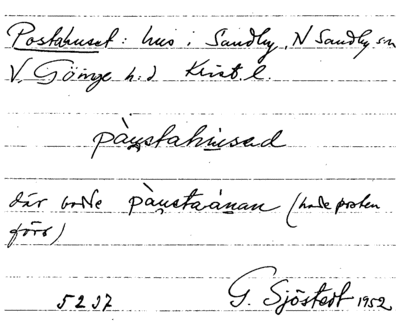 Postahuset: hus i Sandby, N Sandby sn
V. Göinge h.d Krist. l.
pàu̯stahùsəd
där bodde pàu̯staånan (hade posten
förr)
5237 G. Sjöstedt 1952